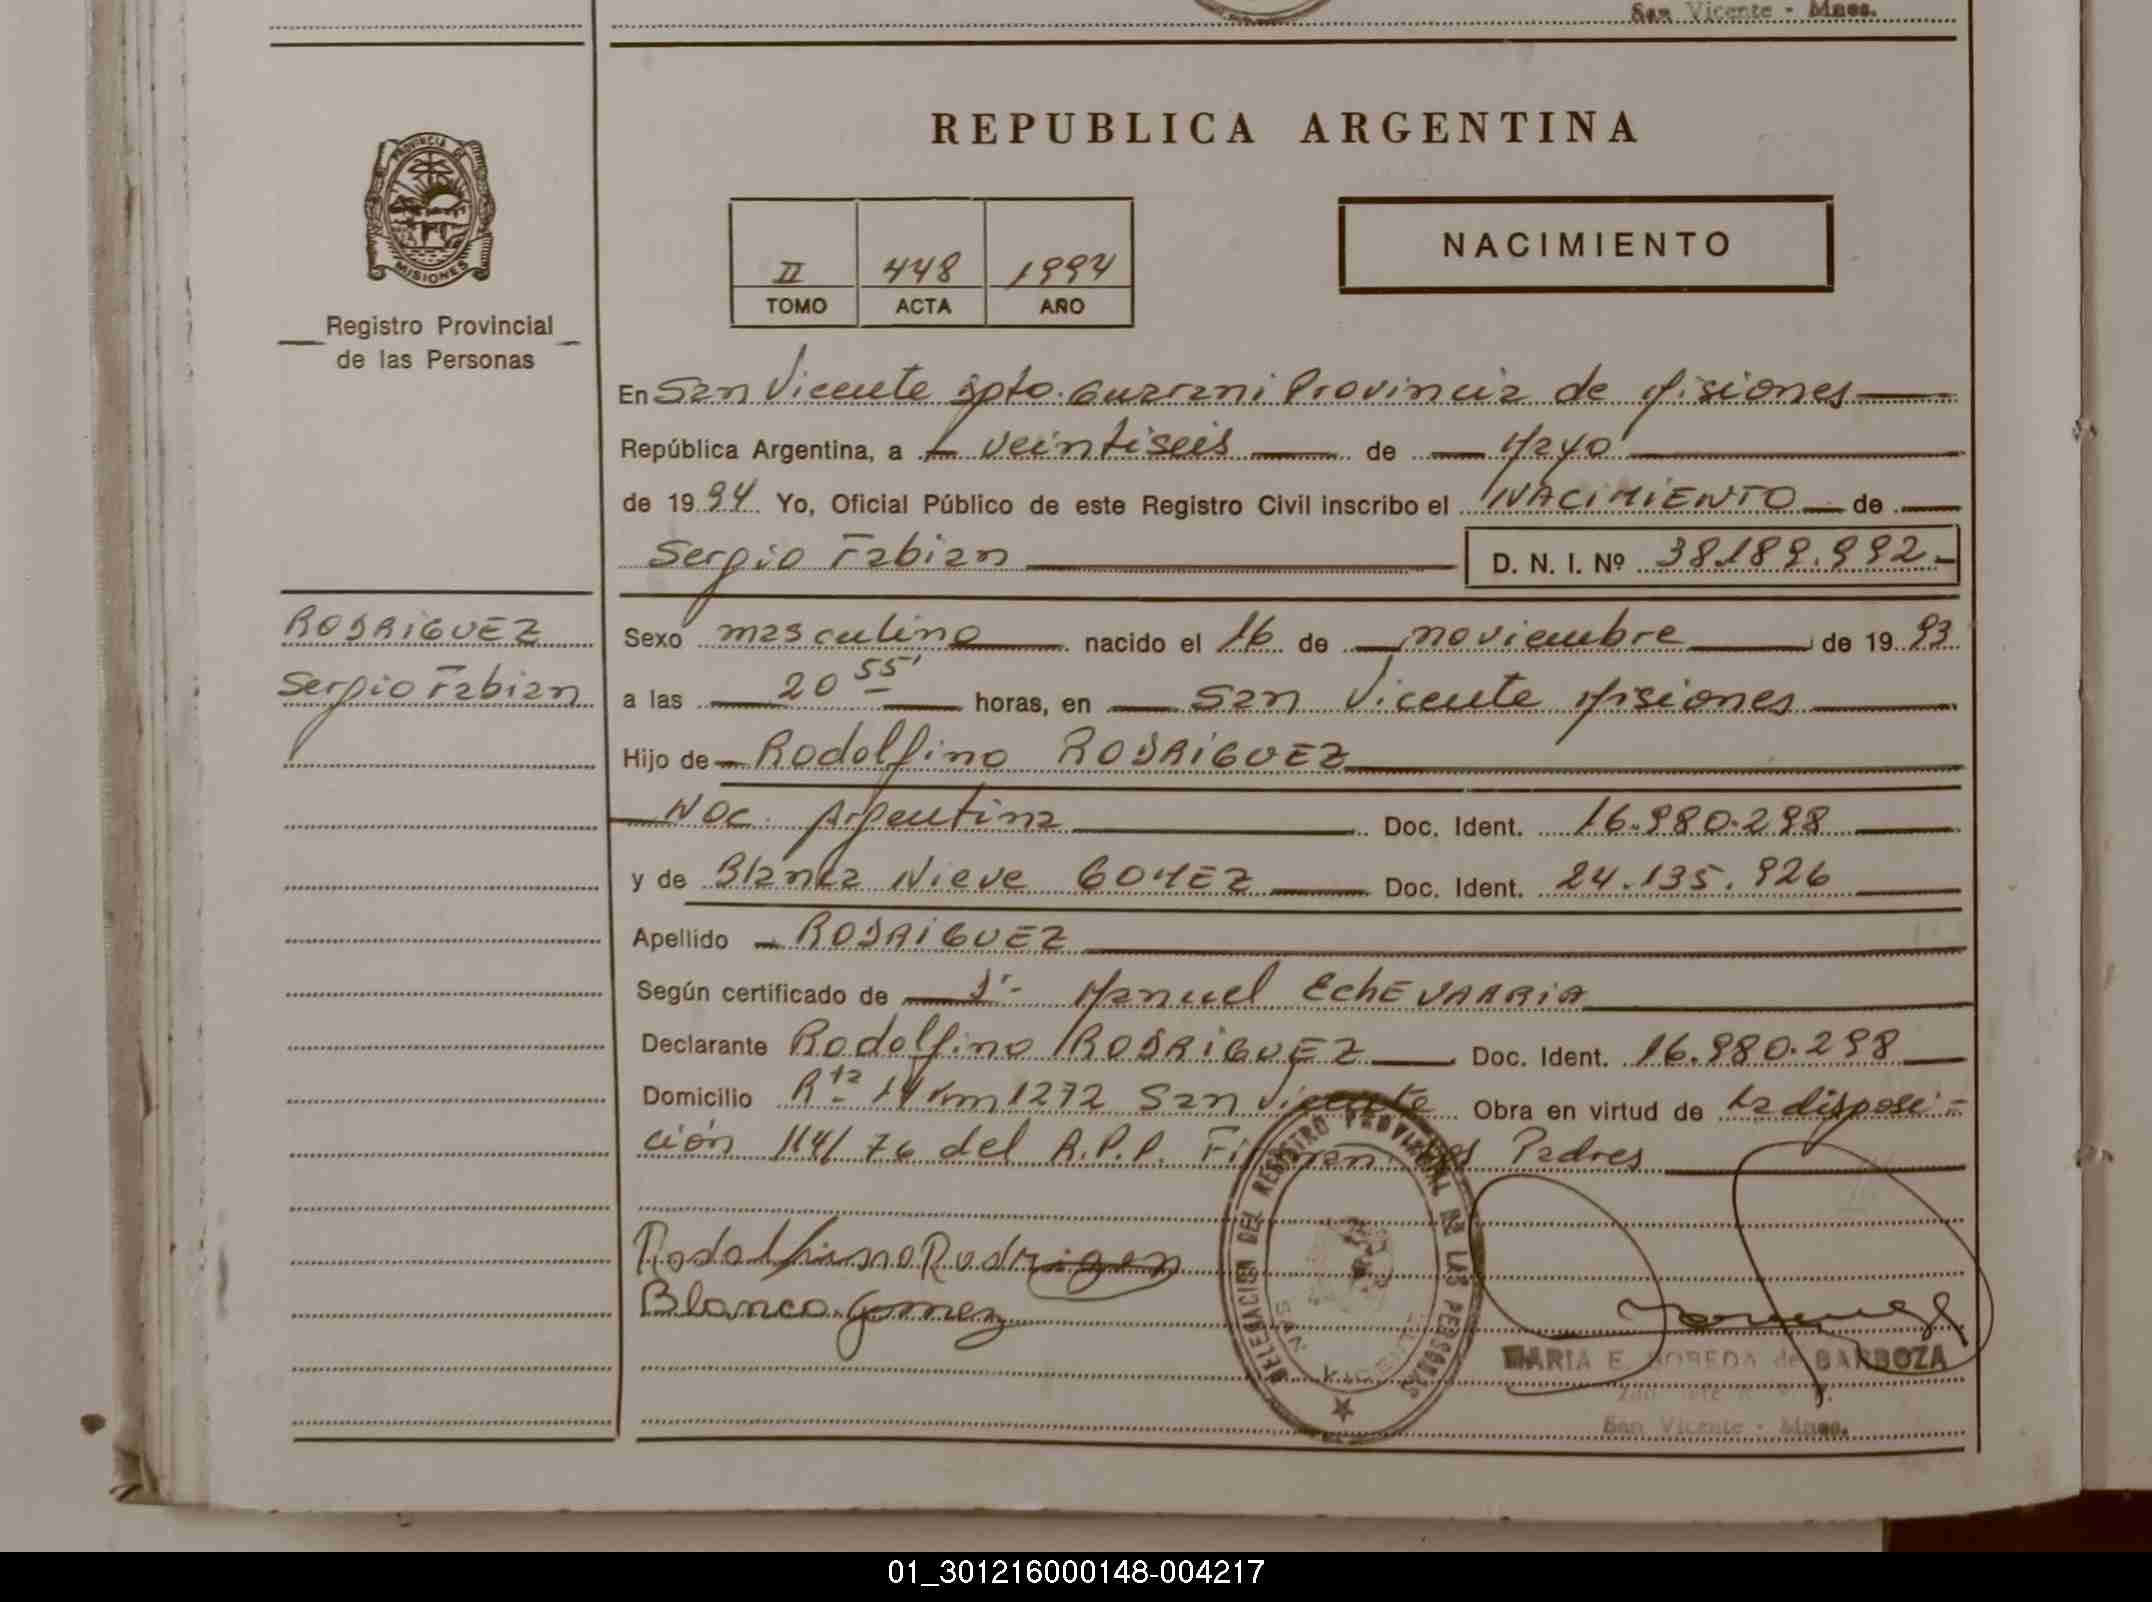 San Vicente - Mnes.
REPUBLICA ARGENTINA
PROVINCIA DE
MISIONES
Registro Provincial
de las Personas
II 448 1994
TOMO ACTA AÑO
NACIMIENTO
En San Vicente Dpto. Guarani Provincia de Misiones
República Argentina, a veintiseis de Mayo
de 1994. Yo, Oficial Público de este Registro Civil inscribo el NACIMIENTO de
Sergio Fabian D. N. I. Nº 38.189.992.-
RODRIGUEZ
Sergio Fabian
Sexo masculino nacido el 16 de noviembre de 1993
a las 20 55' horas, en San Vicente Misiones
Hijo de Rodolfino RODRIGUEZ
Nac. Argentina Doc. Ident. 16.980.298
y de Blanca Nieve GOMEZ Doc. Ident. 24.135.926
Apellido RODRIGUEZ
Según certificado de Dr. Manuel EchEVARRIA
Declarante Rodolfino RODRIGUEZ Doc. Ident. 16.980.298
Domicilio Rta 14 Km 1272 San Vicente Obra en virtud de la disposi-
ción 114/76 del R.P.P. Firman los Padres
Rodolfino Rodriguez
Blanca Gomez
DELEGACION DEL REGISTRO PROVINCIAL DE LAS PERSONAS
SAN VICENTE
MARIA E. de BARBOZA
San Vicente - Mnes.
01_301216000148-004217